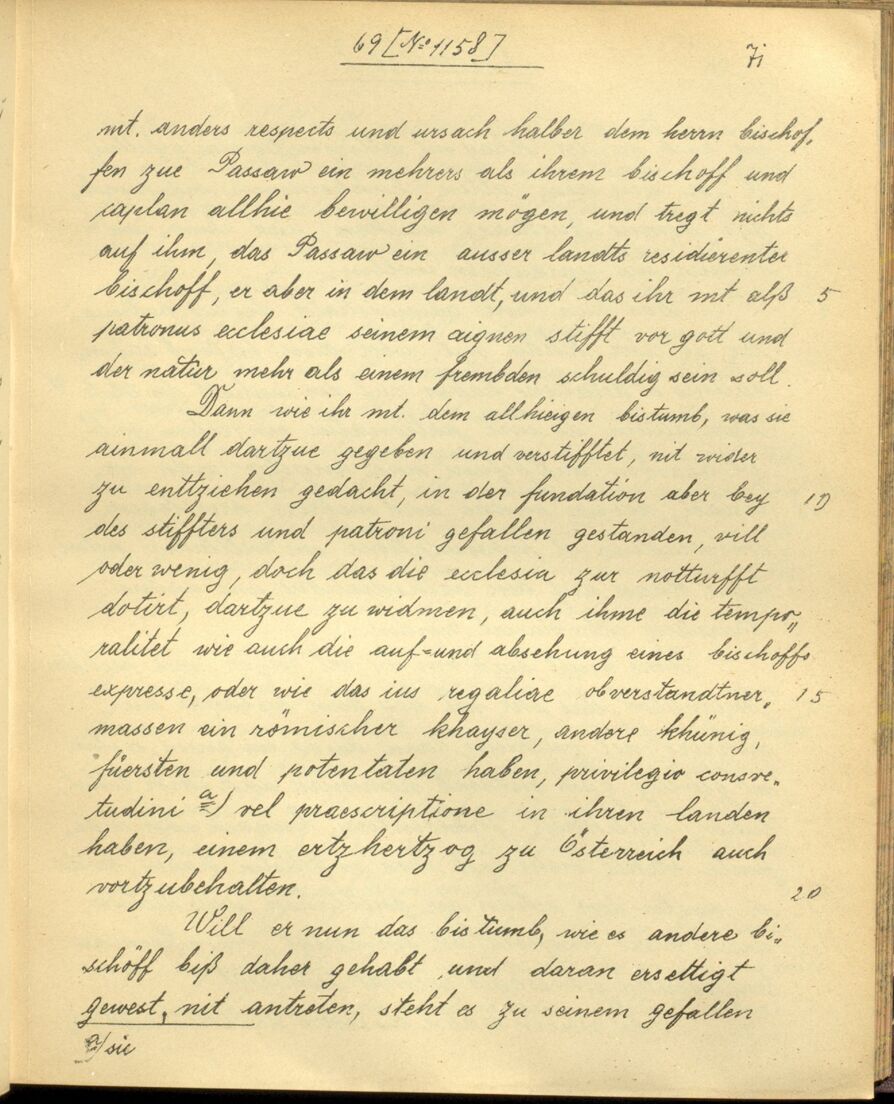 69 [No 1158]
71
mt. anders respects und ursach halber dem herrn bischof„
fen zue Passaw ein mehrers als ihrem bischoff und
caplan allhie bewilligen mögen, und tregt nichts
auf ihm, das Passaw ein ausser landts residierenter
bischoff, er aber in dem landt, und das ihr mt alß 5
patronus ecclesiae seinem aignen stifft vor gott und
der natur mehr als einem frembden schuldig sein soll.
Dann wie ihr mt. dem allhieigen bistumb, was sie
ainmall dartzue gegeben und verstifftet, nit wider
zu enttziehen gedacht, in der fundation aber bey 10
des stiffters und patroni gefallen gestanden, vill
oder wenig, doch das die ecclesia zur notturfft
dotirt, dartzue zu widmen, auch ihme die tempo„
ralitet wie auch die auf- und absehung eines bischoffs
expresse, oder wie das ius regaliae obverstandtner„ 15
massen ein römischer khayser, andere khünig,
füersten und potentaten haben, privilegio consve„
tudini a) vel praescriptione in ihren landen
haben, einem ertzhertzog zu Österreich auch
vortzubehalten. 20
Will er nun das bistumb, wie es andere bi„
schöff biß daher gehabt und daran ersettigt
gewest, nit antreten, steht es zu seinem gefallen
a) sic